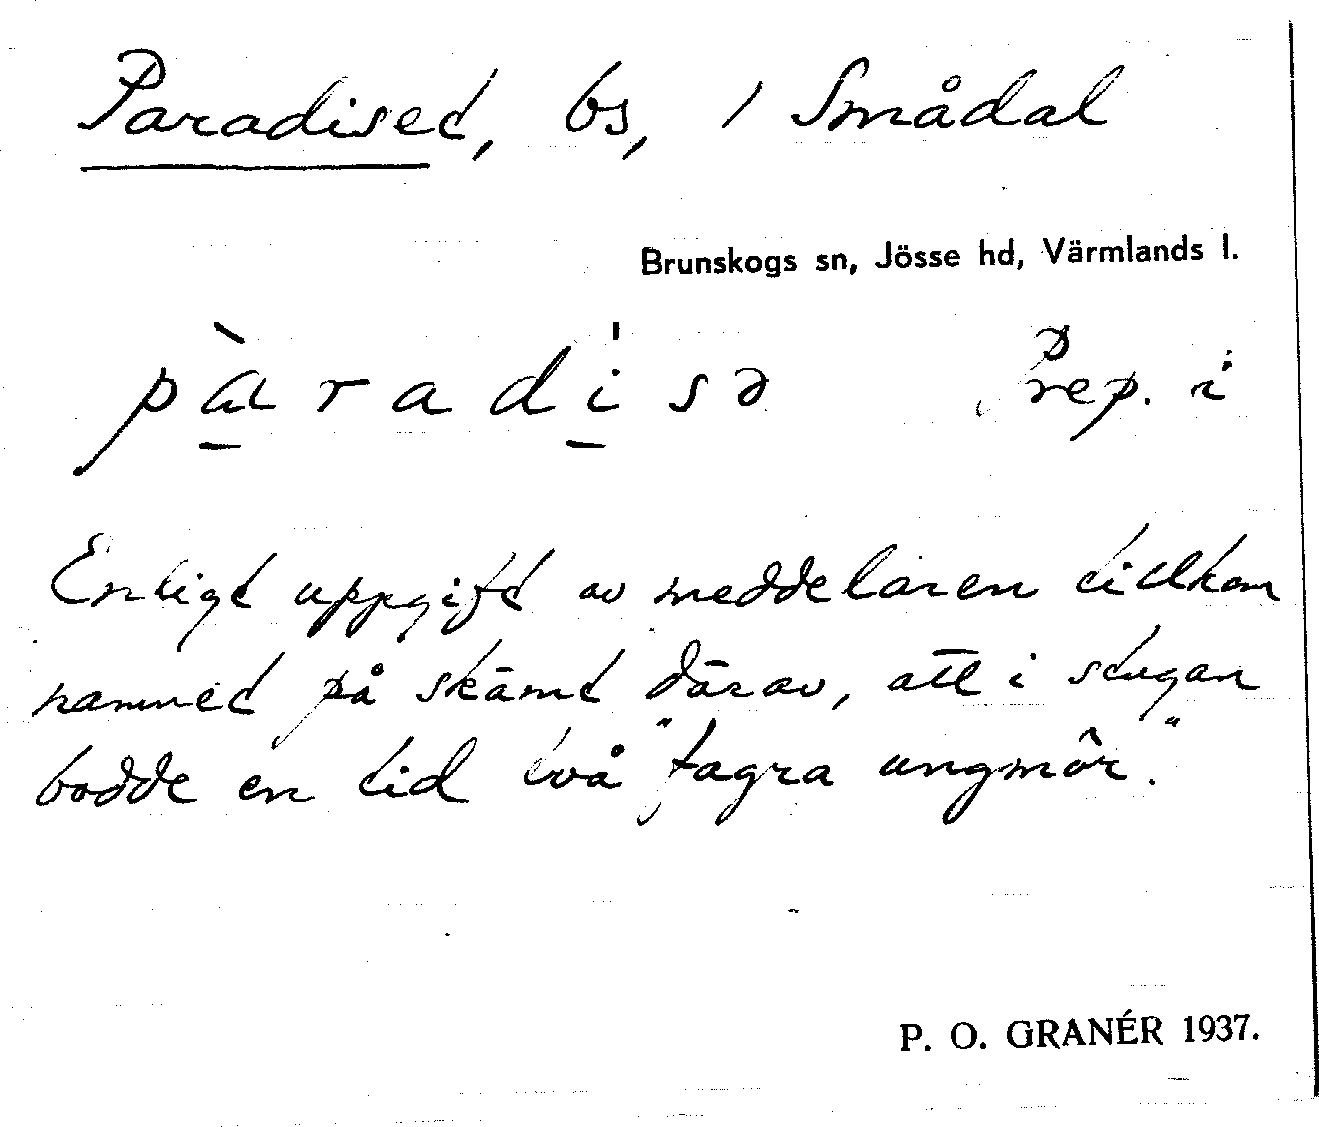 Paradiset, bs, / Smådal
Brunskogs sn, Jösse hd, Värmlands l.
pàradi̍sə Prep. i
Enligt uppgift av meddelaren tillkom
namnet på skämt därav, att i stugan
bodde en tid två "fagra ungmör".
P. O. GRANÉR 1937.